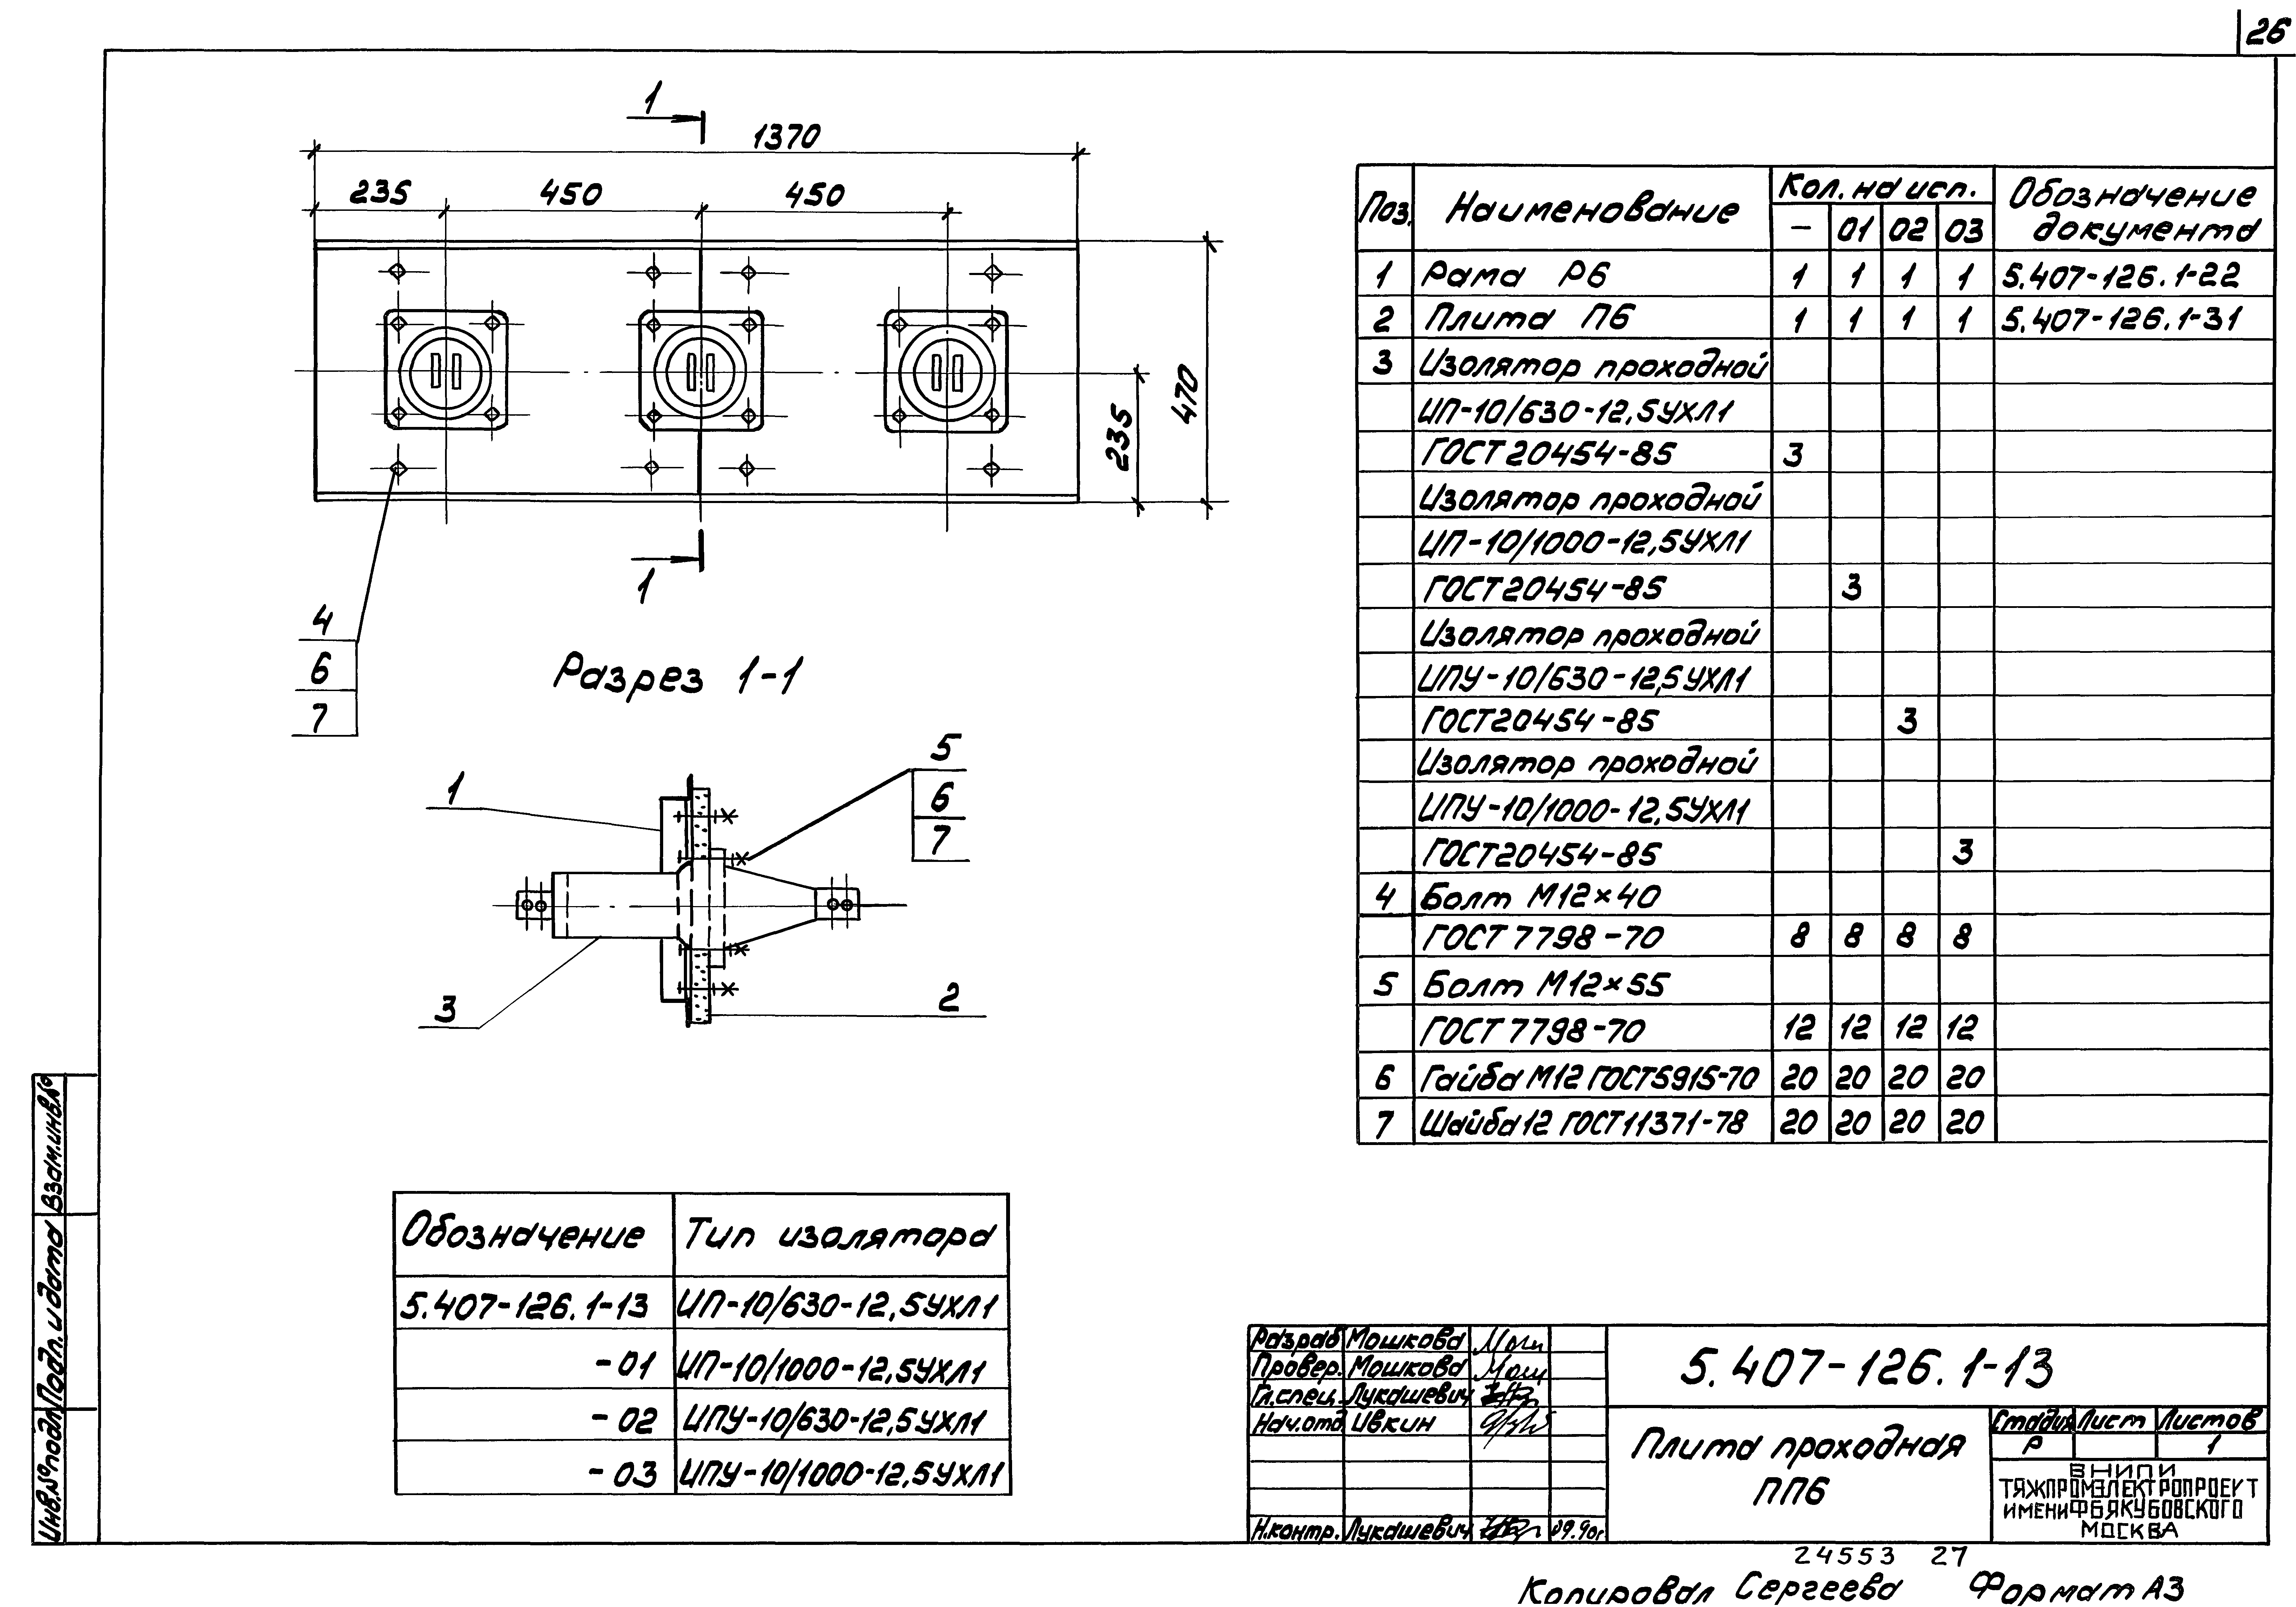 26
1
1370
235 450 450
235
470
1
4
6
7
Разрез 1-1
1
5
6
7
3
2
Поз. Наименование Кол. на исп. Обозначение документа
— 01 02 03
1 Рама Р6 1 1 1 1 5.407-126.1-22
2 Плита П6 1 1 1 1 5.407-126.1-31
3 Изолятор проходной
ИП-10/630-12,5УХЛ1
ГОСТ 20454-85 3
Изолятор проходной
ИП-10/1000-12,5УХЛ1
ГОСТ 20454-85 3
Изолятор проходной
ИПУ-10/630-12,5УХЛ1
ГОСТ 20454-85 3
Изолятор проходной
ИПУ-10/1000-12,5УХЛ1
ГОСТ 20454-85 3
4 Болт М12×40
ГОСТ 7798-70 8 8 8 8
5 Болт М12×55
ГОСТ 7798-70 12 12 12 12
6 Гайба М12 ГОСТ5915-70 20 20 20 20
7 Шайба 12 ГОСТ11371-78 20 20 20 20
Обозначение Тип изолятора
5.407-126.1-13 ИП-10/630-12,5УХЛ1
-01 ИП-10/1000-12,5УХЛ1
-02 ИПУ-10/630-12,5УХЛ1
-03 ИПУ-10/1000-12,5УХЛ1
Взам.инв.№
Подп. и дата
Инв.№подл.
Разраб. Мошкова
Провер. Мошкова
Гл.спец. Лукашевич
Нач.отд. Ивкин
Н.контр. Лукашевич 09.90г
5.407-126.1-13
Плита проходная
ПП6
Стадия Лист Листов
Р 1
ВНИПИ
ТЯЖПРОМЭЛЕКТРОПРОЕКТ
ИМЕНИ Ф.Б.ЯКУБОВСКОГО
МОСКВА
24553 27
Копировал Сергеева Формат А3